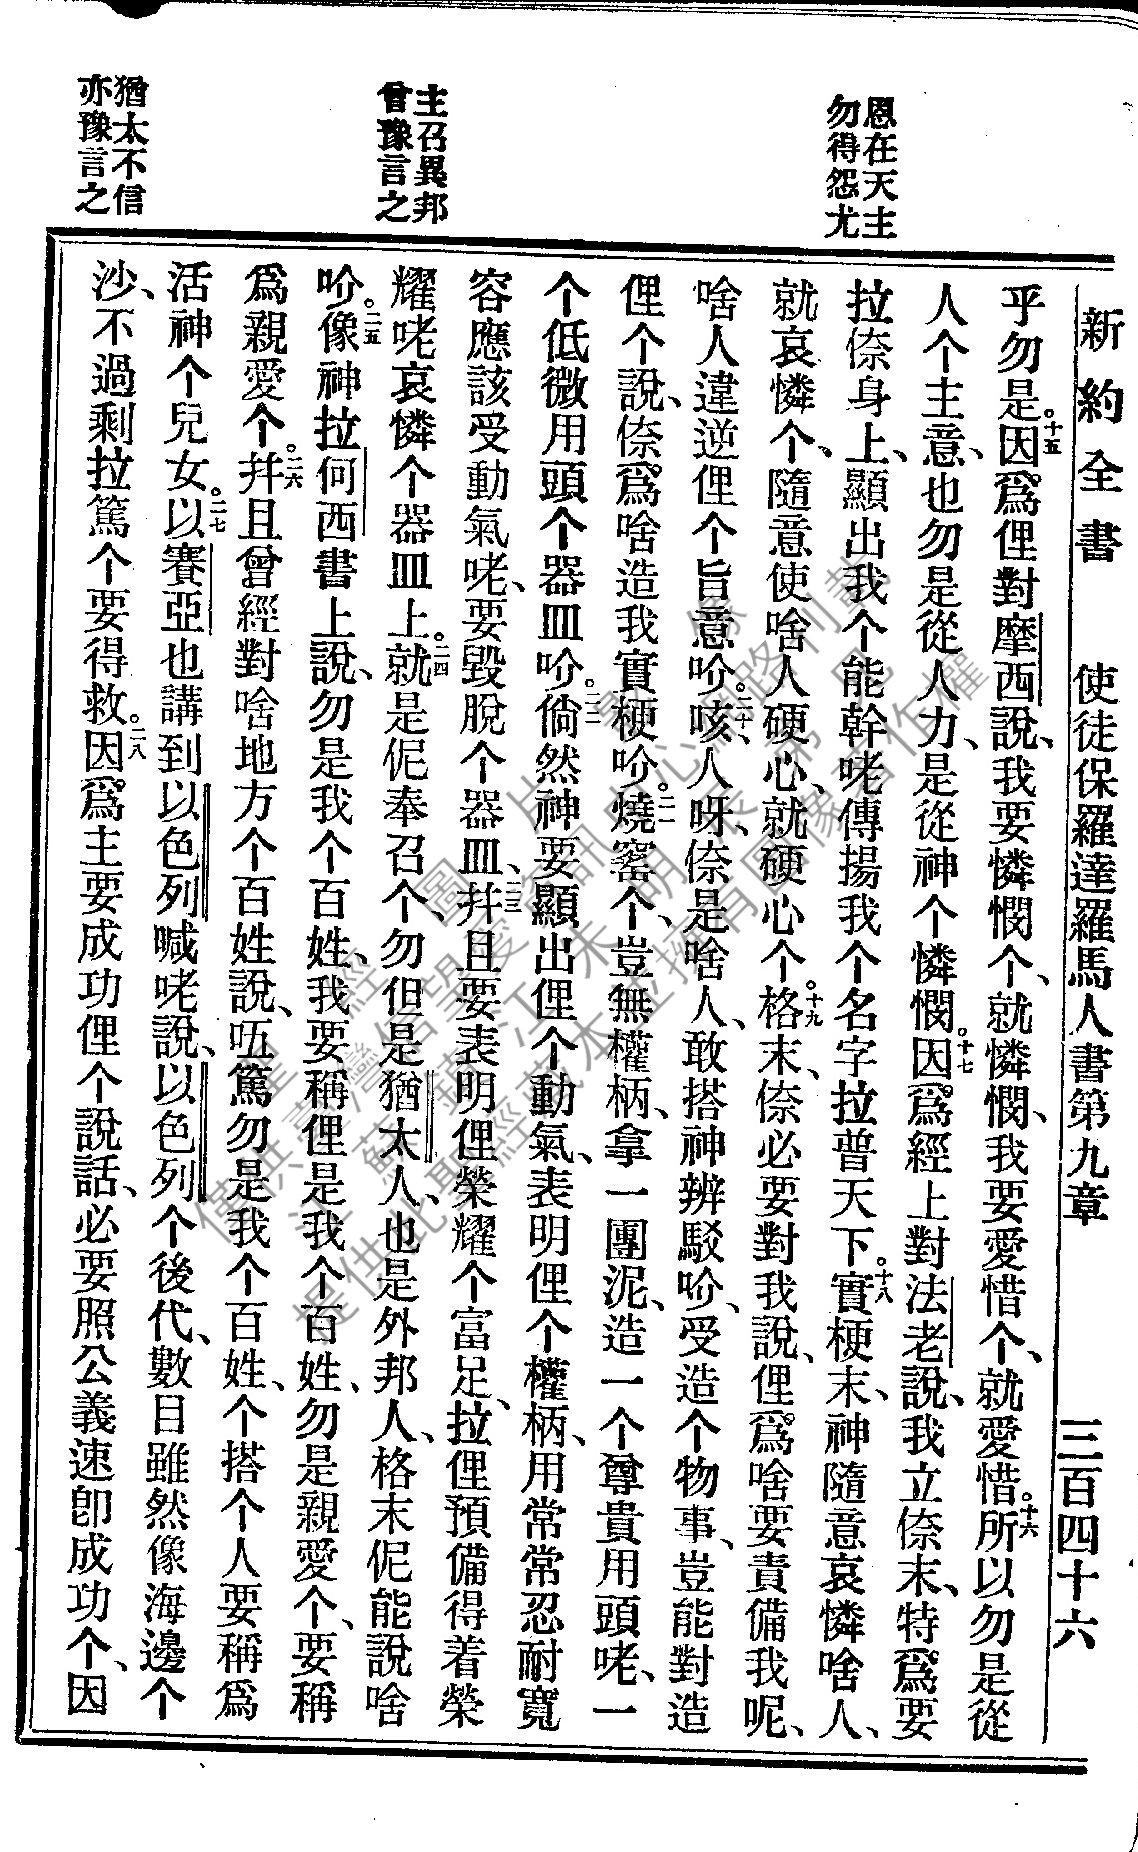 恩在天主
勿得怨尤
主召異邦
曾豫言之
猶太不信
亦豫言之
新約全書 使徒保羅達羅馬人書第九章 三百四十六
乎勿是。十五因爲俚對摩西說、我要憐憫个、就憐憫、我要愛惜个、就愛惜。十六所以勿是從
人个主意、也勿是從人力、是從神个憐憫。十七因爲經上對法老說、我立倷末、特爲要
拉倷身上、顯出我个能幹咾傳揚我个名字拉普天下。十八實梗末、神隨意哀憐啥人、
就哀憐个、隨意使啥人硬心、就硬心个。十九格末、倷必要對我說、俚爲啥要責備我呢、
啥人違逆俚个旨意吤。二十咳、人呀、倷是啥人、敢搭神辨駁吤、受造个物事、豈能對造
俚个說、倷爲啥造我實梗吤。二一燒窰个、豈無權柄、拿一團泥、造一个尊貴用頭咾、一
个低微用頭个器皿吤。二二倘然神要顯出俚个動氣、表明俚个權柄、用常常忍耐寬
容應該受動氣咾、要毀脫个器皿、二三幷且要表明俚榮耀个富足、拉俚預備得着榮
耀咾哀憐个器皿上。二四就是伲奉召个、勿但是猶太人、也是外邦人、格末伲能說啥
吤。二五像神拉何西書上說、勿是我个百姓、我要稱俚是我个百姓、勿是親愛个、要稱
爲親愛个。二六幷且曾經對啥地方个百姓說、㑚篤勿是我个百姓、个搭个人要稱爲
活神个兒女。二七以賽亞也講到以色列喊咾說、以色列个後代、數目雖然像海邊个
沙、不過剩拉篤个要得救。二八因爲主要成功俚个說話、必要照公義速卽成功个、因